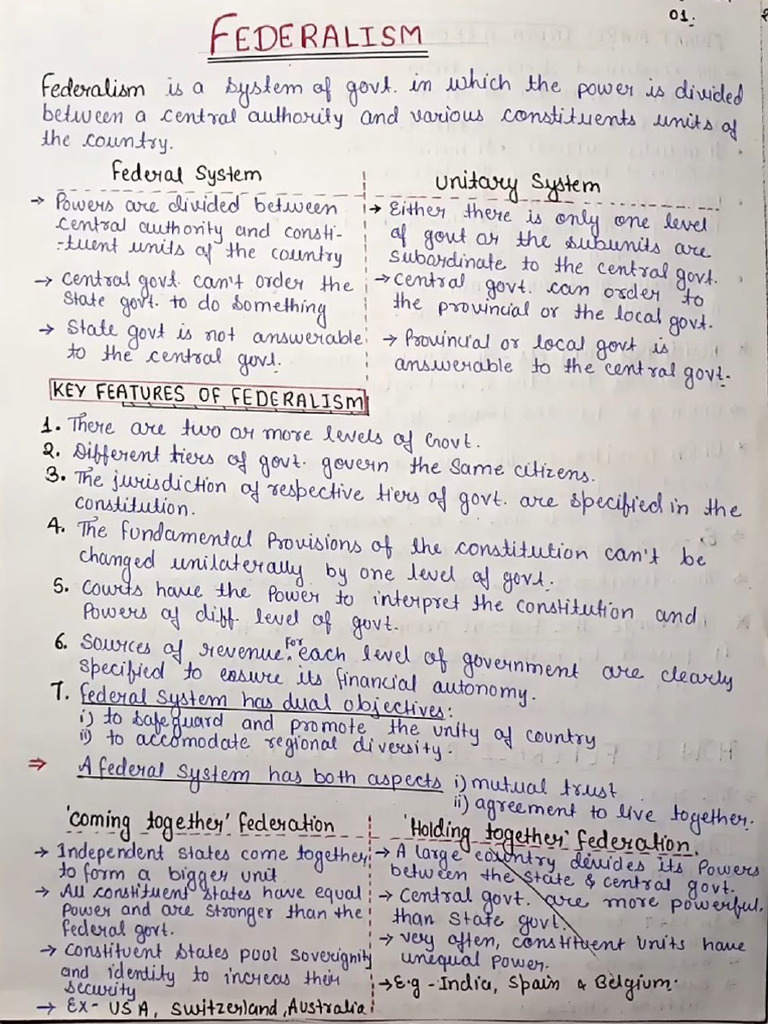 01.
FEDERALISM
Federalism is a system of govt. in which the power is divided
between a central authority and various constituents units of
the country.
Federal System
→ Powers are divided between
central authority and consti-
-tuent units of the country
→ Central govt. can't order the
State govt. to do something
→ State govt is not answerable
to the central govt.
Unitary System
→ Either there is only one level
of govt or the subunits are
subordinate to the central govt.
→ Central govt. can order to
the provincial or the local govt.
→ Provincial or local govt is
answerable to the central govt.
KEY FEATURES OF FEDERALISM
1. There are two or more levels of Govt.
2. Different tiers of govt. govern the same citizens.
3. The jurisdiction of respective tiers of govt. are specified in the
constitution.
4. The fundamental Provisions of the constitution can't be
changed unilaterally by one level of govt.
5. Courts have the Power to interpret the constitution and
Powers of diff. level of govt.
6. Sources of revenue for each level of government are clearly
specified to ensure its financial autonomy.
7. Federal System has dual objectives:
i) to safeguard and promote the unity of country
ii) to accomodate regional diversity.
⇒ A federal System has both aspects i) mutual trust
ii) agreement to live together.
'Coming together' federation
→ Independent states come together
to form a bigger unit
→ All constituent states have equal
Power and are stronger than the
federal govt.
→ Constituent States pool soverignity
and identity to increas their
security
→ Ex- USA, Switzerland, Australia
'Holding together' federation.
→ A large country devides its Powers
between the state & central govt.
→ Central govt. are more powerful
than State govt.
→ very often, constituent units have
unequal power.
→ E.g - India, Spain & Belgium.